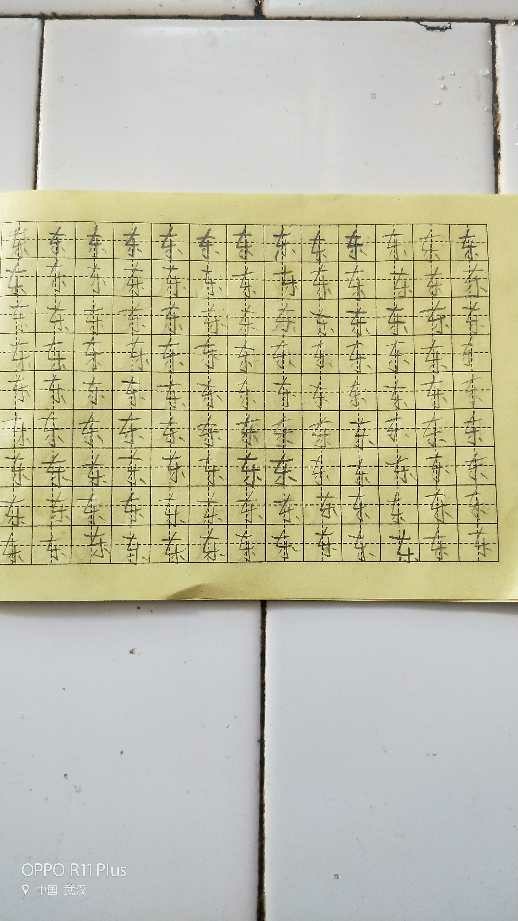 东 东 东 东 东 东 东 东 东 东 东 东 东
东 东 东 东 东 东 东 东 东 东 东 东 东
东 东 东 东 东 东 东 东 东 东 东 东 东
东 东 东 东 东 东 东 东 东 东 东 东 东
东 东 东 东 东 东 东 东 东 东 东 东 东
东 东 东 东 东 东 东 东 东 东 东 东 东
东 东 东 东 东 东 东 东 东 东 东 东 东
东 东 东 东 东 东 东 东 东 东 东 东 东
东 东 东 东 东 东 东 东 东 东 东 东 东
OPPO R11 Plus
中国 武汉